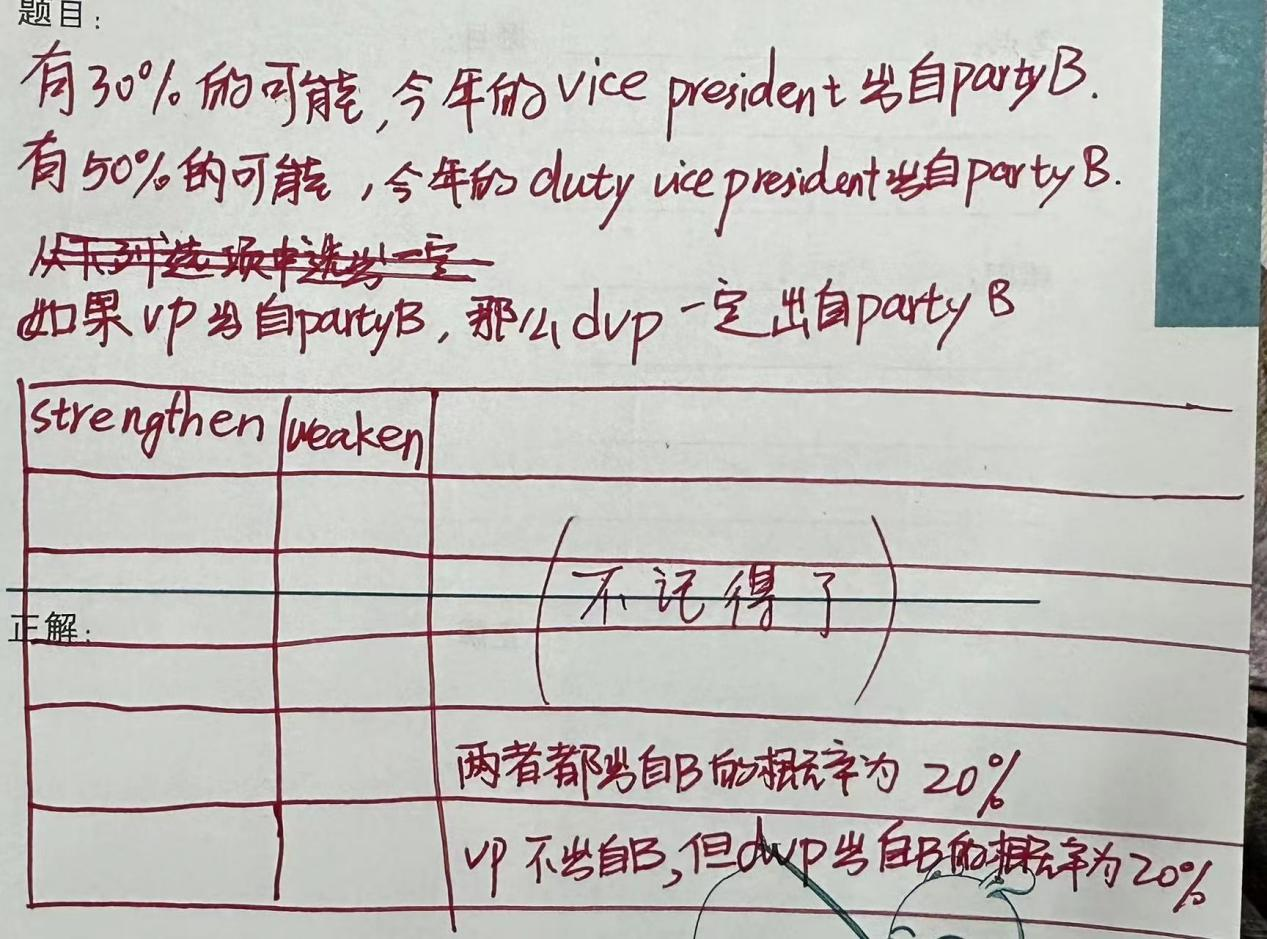 题目:
有30%的可能,今年的vice president出自partyB.
有50%的可能,今年的duty vice president出自partyB.
从下列选项中选出一定
如果vp出自partyB,那么dvp一定出自partyB
strengthen weaken
(不记得了)
正解:
两者都出自B的概率为 20%
vp不出自B,但dvp出自B的概率为20%